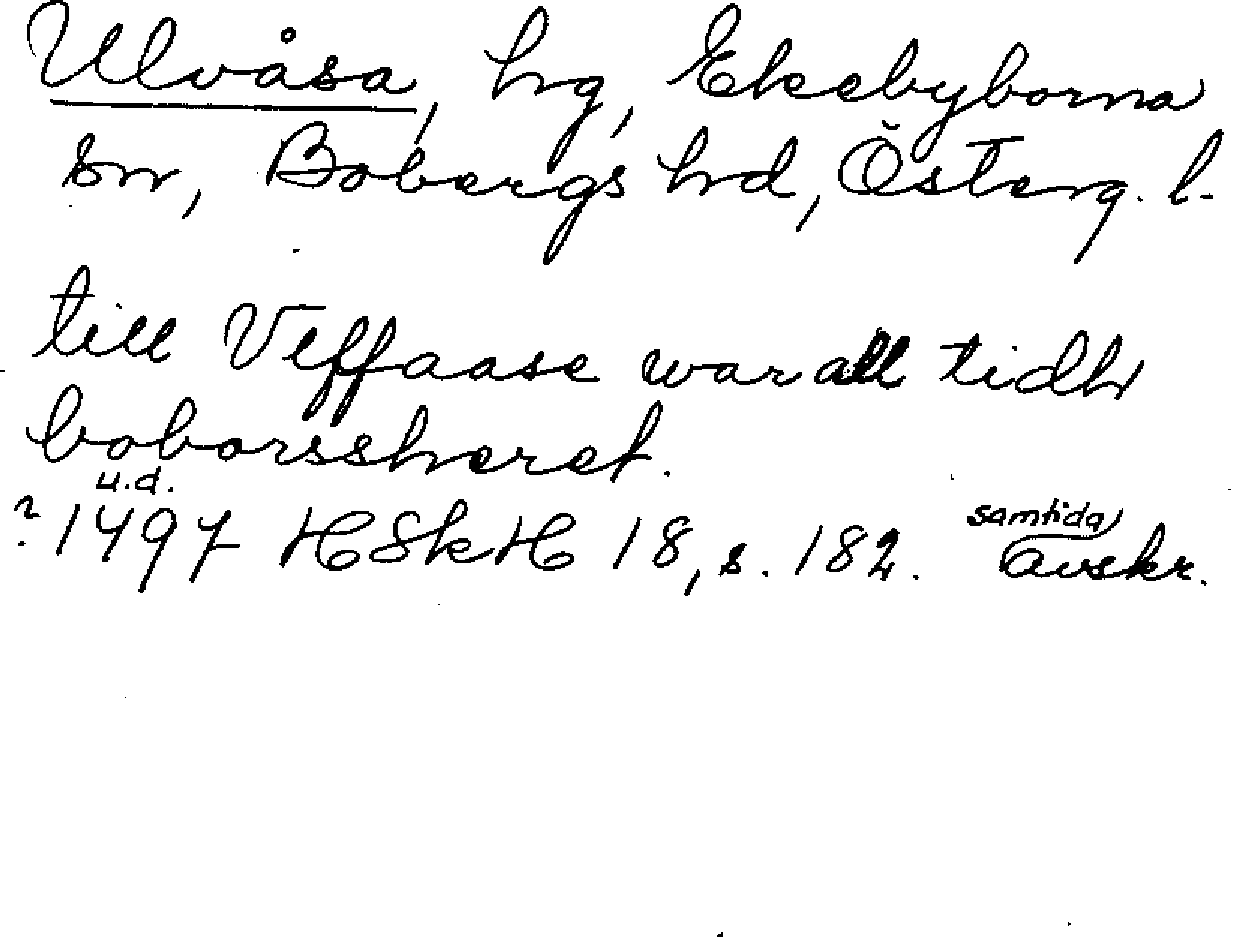 Ulvåsa, hrg, Ekebyborna
sn, Bobergs hrd, Österg. l.
till Vlffaase war all tidh
boborsshæret.
u.d.
? 1497 HSkH 18, s. 182. samtida avskr.